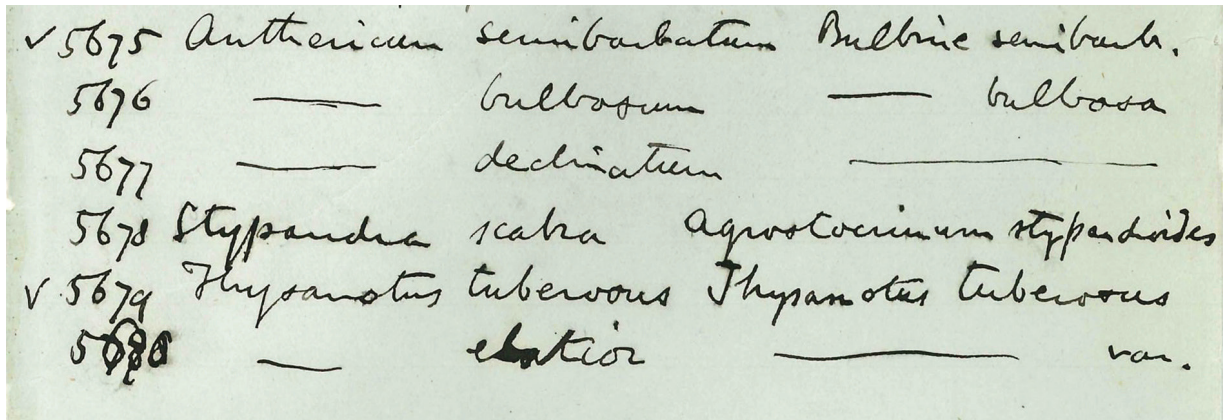 ✓ 5675 Anthericum semibarbatum Bulbine semibarb.
5676 — bulbosum — bulbosa
5677 — declinatum — —
5678 Stypandra scabra Agrostocrinum stypandroides
✓ 5679 Thysanotus tuberosus Thysanotus tuberosus
5680 — elatior — var.